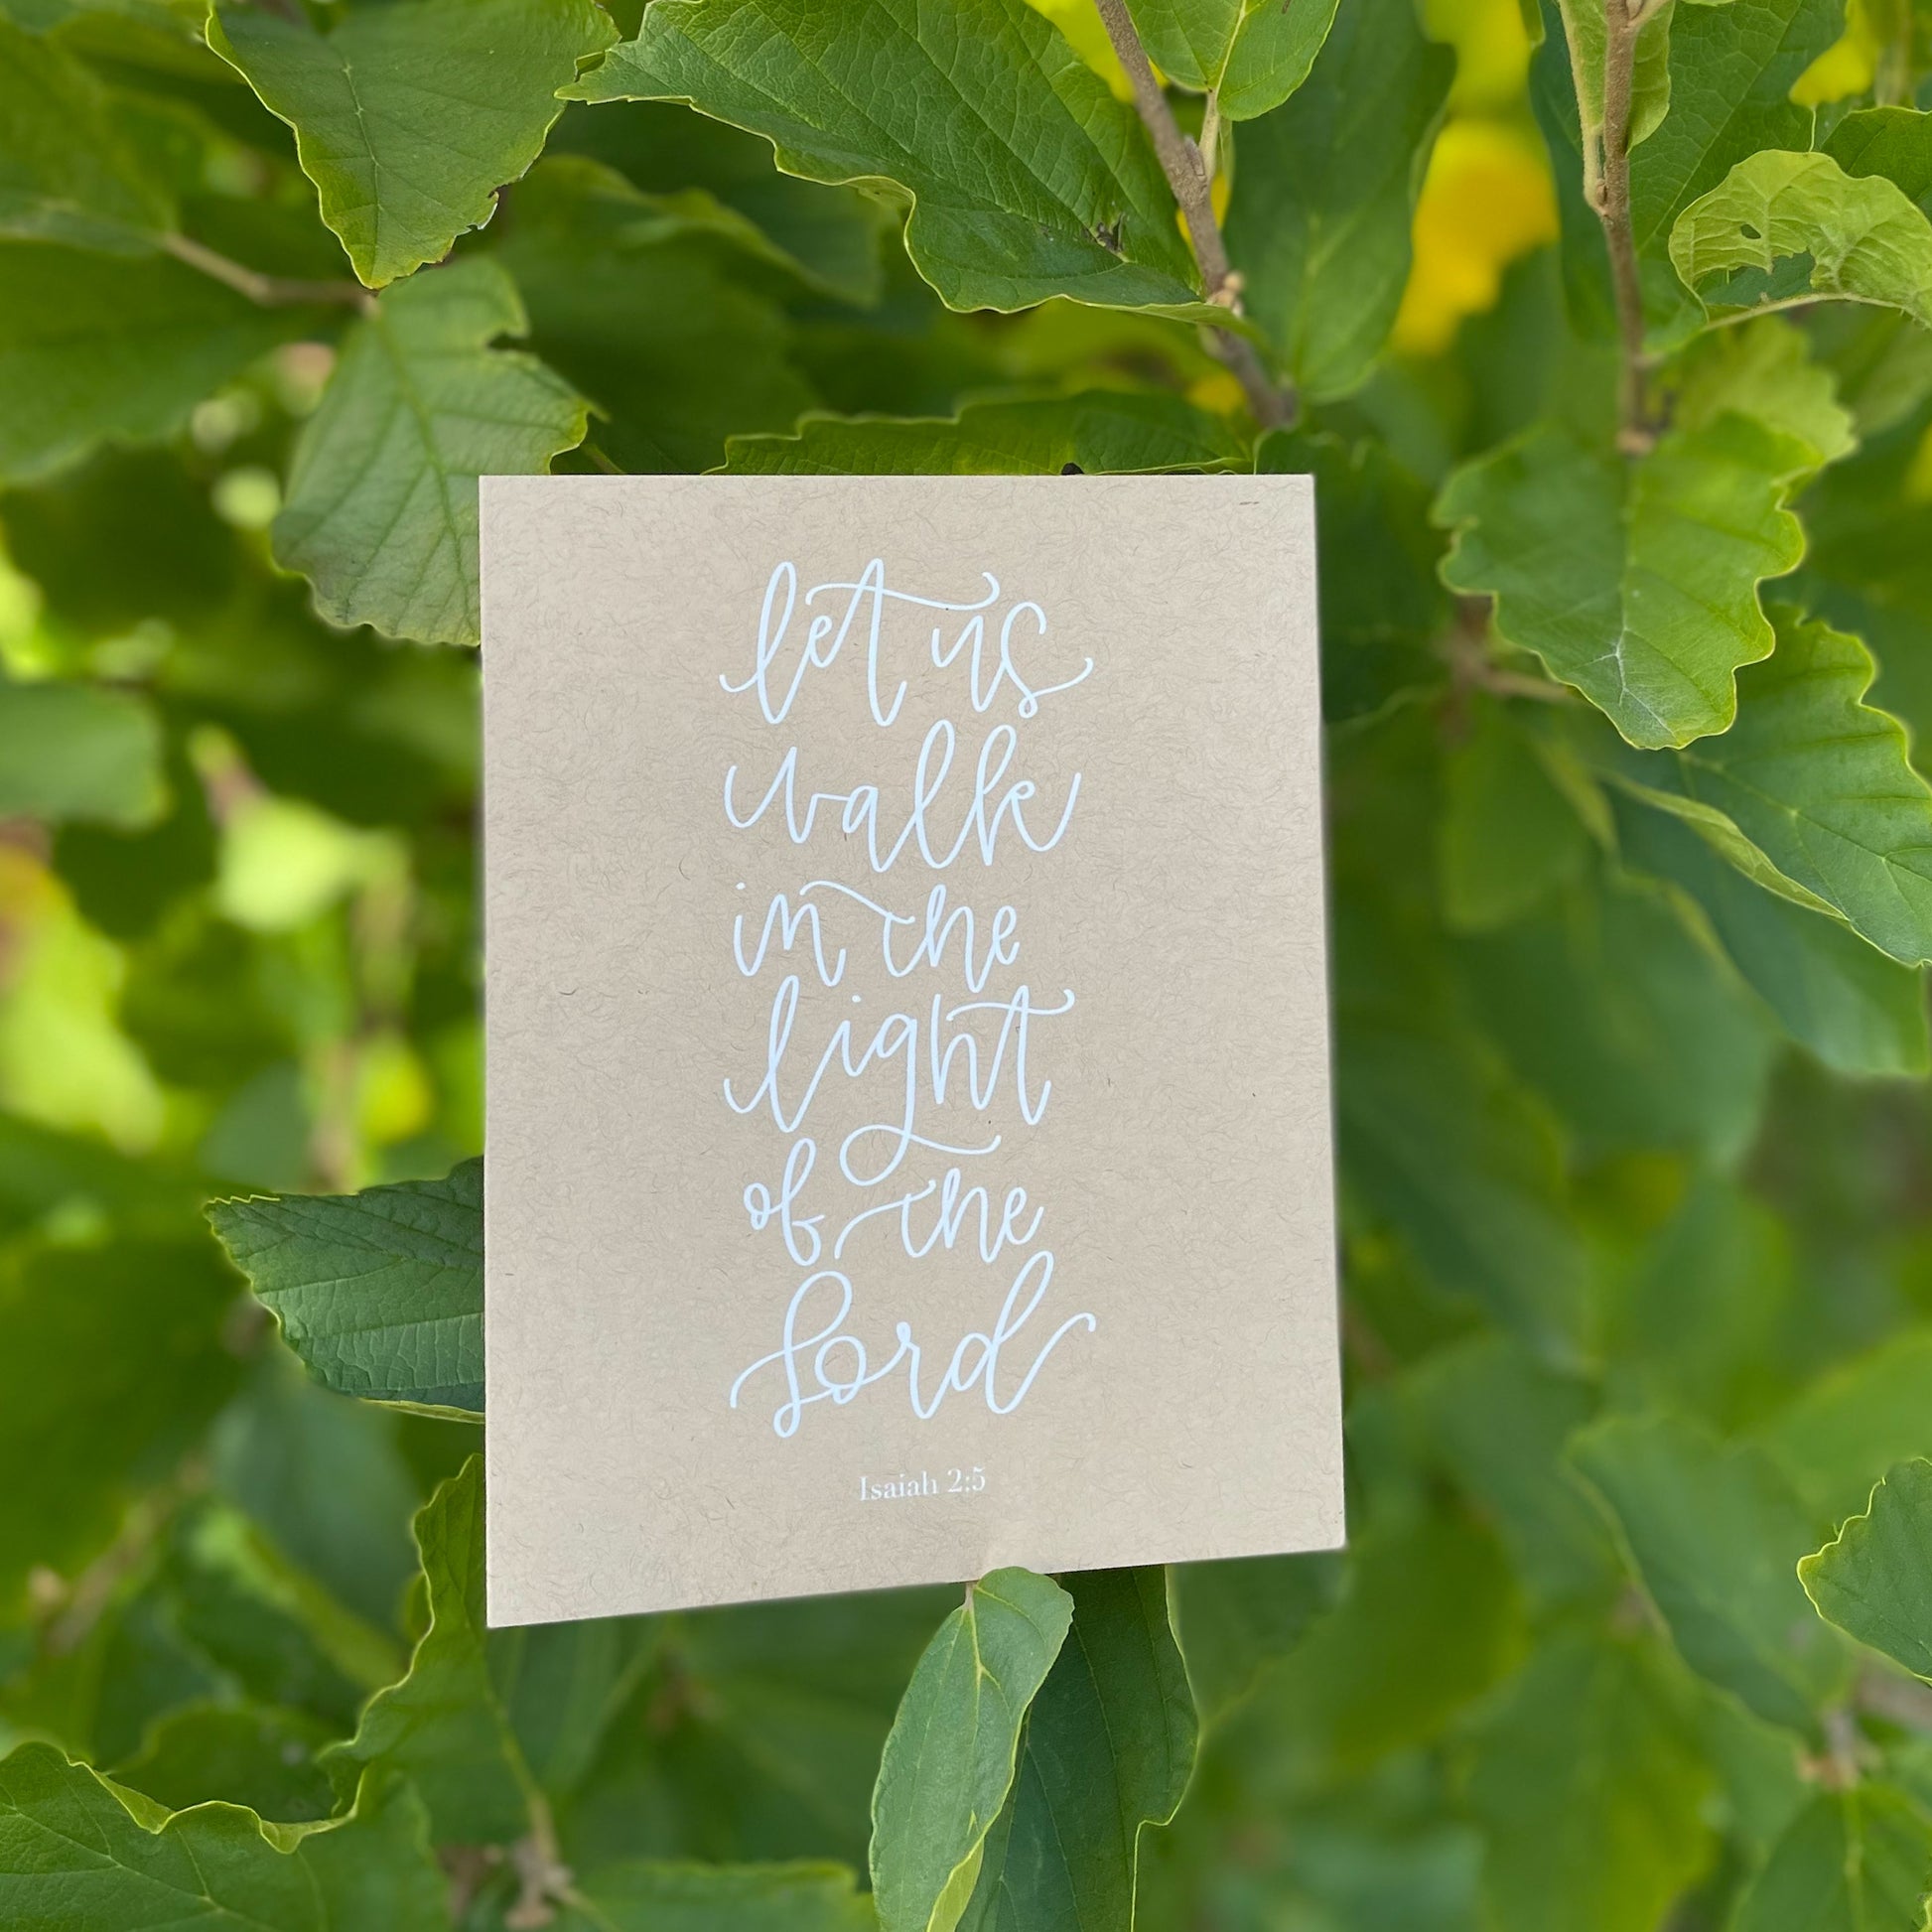 let us
walk
in the
light
of the
Lord
Isaiah 2:5